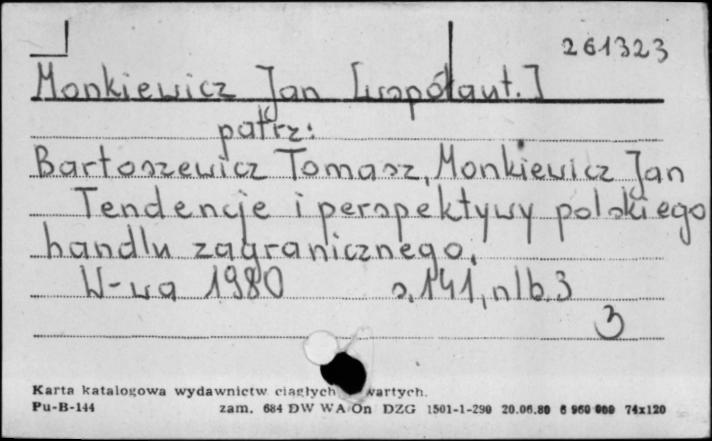 261323
Monkiewicz Jan [współaut.]
patrz:
Bartoszewicz Tomasz, Monkiewicz Jan
Tendencje i perspektywy polskiego
handlu zagranicznego.
W-wa 1980 s. 141, nlb. 3
3
Karta katalogowa wydawnictw ciągłych wartych.
Pu-B-144 zam. 684 DW WA/On DZG 1501-1-290 20.06.80 6 960 000 74x120